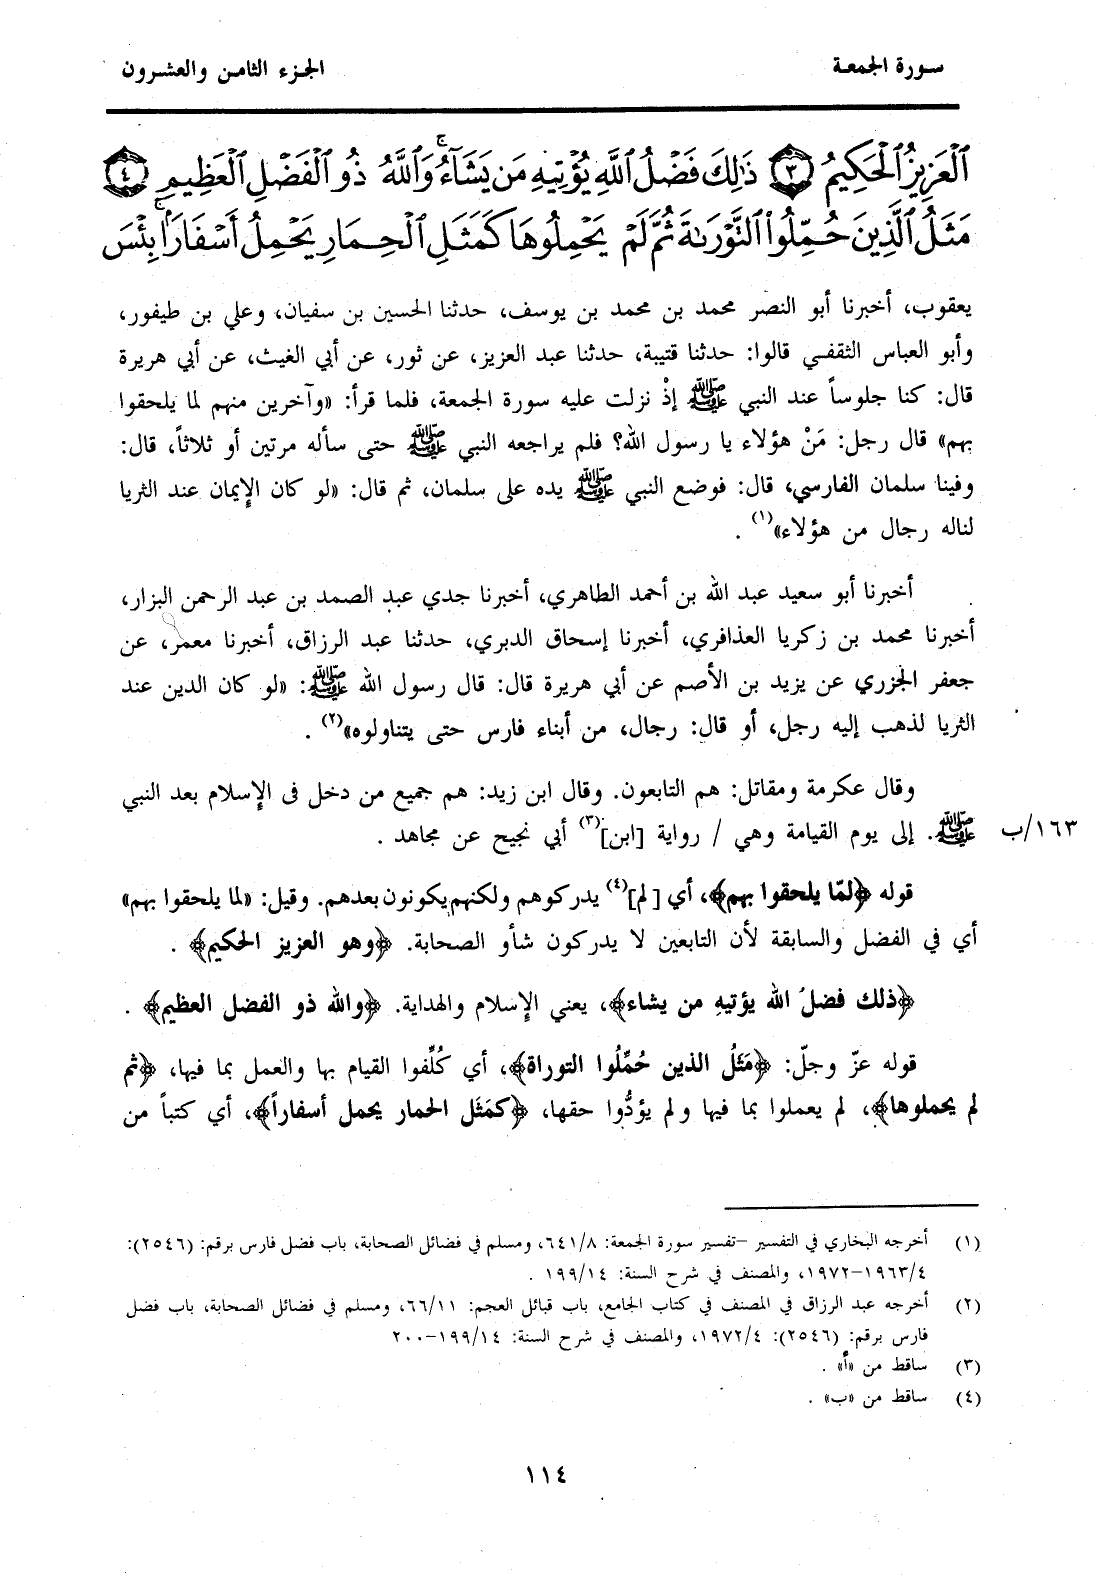 سورة الجمعة الجزء الثامن والعشرون
ٱلْعَزِيزُ ٱلْحَكِيمُ ٣ ذَٰلِكَ فَضْلُ ٱللَّهِ يُؤْتِيهِ مَن يَشَآءُ ۚ وَٱللَّهُ ذُو ٱلْفَضْلِ ٱلْعَظِيمِ ٤
مَثَلُ ٱلَّذِينَ حُمِّلُوا۟ ٱلتَّوْرَىٰةَ ثُمَّ لَمْ يَحْمِلُوهَا كَمَثَلِ ٱلْحِمَارِ يَحْمِلُ أَسْفَارًۢا ۚ بِئْسَ
يعقوب، أخبرنا أبو النصر محمد بن محمد بن يوسف، حدثنا الحسين بن سفيان، وعلي بن طيفور،
وأبو العباس الثقفي قالوا: حدثنا قتيبة، حدثنا عبد العزيز، عن ثور، عن أبي الغيث، عن أبي هريرة
قال: كنا جلوساً عند النبي ﷺ إذْ نزلت عليه سورة الجمعة، فلما قرأ: «وآخرين منهم لما يلحقوا
بهم» قال رجل: مَنْ هؤلاء يا رسول الله؟ فلم يراجعه النبي ﷺ حتى سأله مرتين أو ثلاثاً، قال:
وفينا سلمان الفارسي، قال: فوضع النبي ﷺ يده على سلمان، ثم قال: «لو كان الإيمان عند الثريا
لناله رجال من هؤلاء»(١) .
أخبرنا أبو سعيد عبد الله بن أحمد الطاهري، أخبرنا جدي عبد الصمد بن عبد الرحمن البزار،
أخبرنا محمد بن زكريا العذافري، أخبرنا إسحاق الدبري، حدثنا عبد الرزاق، أخبرنا معمر، عن
جعفر الجزري عن يزيد بن الأصم عن أبي هريرة قال: قال رسول الله ﷺ: «لو كان الدين عند
الثريا لذهب إليه رجل، أو قال: رجال، من أبناء فارس حتى يتناولوه»(٢) .
وقال عكرمة ومقاتل: هم التابعون. وقال ابن زيد: هم جميع من دخل فى الإسلام بعد النبي
١٦٣/ب ﷺ. إلى يوم القيامة وهي / رواية [ابن](٣) أبي نجيح عن مجاهد .
قوله ﴿لمّا يلحقوا بهم﴾، أي [لم](٤) يدركوهم ولكنهم يكونون بعدهم. وقيل: «لما يلحقوا بهم»
أي في الفضل والسابقة لأن التابعين لا يدركون شأو الصحابة. ﴿وهو العزيز الحكيم﴾ .
﴿ذلك فضلُ الله يؤتيهِ من يشاء﴾، يعني الإسلام والهداية. ﴿والله ذو الفضل العظيم﴾ .
قوله عزّ وجلّ: ﴿مَثَلُ الذين حُمِّلُوا التوراة﴾، أي كُلِّفوا القيام بها والعمل بما فيها، ﴿ثم
لم يحملوها﴾، لم يعملوا بما فيها ولم يؤدُّوا حقها، ﴿كمَثَل الحمار يحمل أسفاراً﴾، أي كتباً من
(١) أخرجه البخاري في التفسير –تفسير سورة الجمعة: ٦٤١/٨، ومسلم في فضائل الصحابة، باب فضل فارس برقم: (٢٥٤٦):
٤/١٩٦٣–١٩٧٢، والمصنف في شرح السنة: ١٩٩/١٤ .
(٢) أخرجه عبد الرزاق في المصنف في كتاب الجامع، باب قبائل العجم: ٦٦/١١، ومسلم في فضائل الصحابة، باب فضل
فارس برقم: (٢٥٤٦): ١٩٧٢/٤، والمصنف في شرح السنة: ١٩٩/١٤–٢٠٠
(٣) ساقط من «أ» .
(٤) ساقط من «ب» .
١١٤